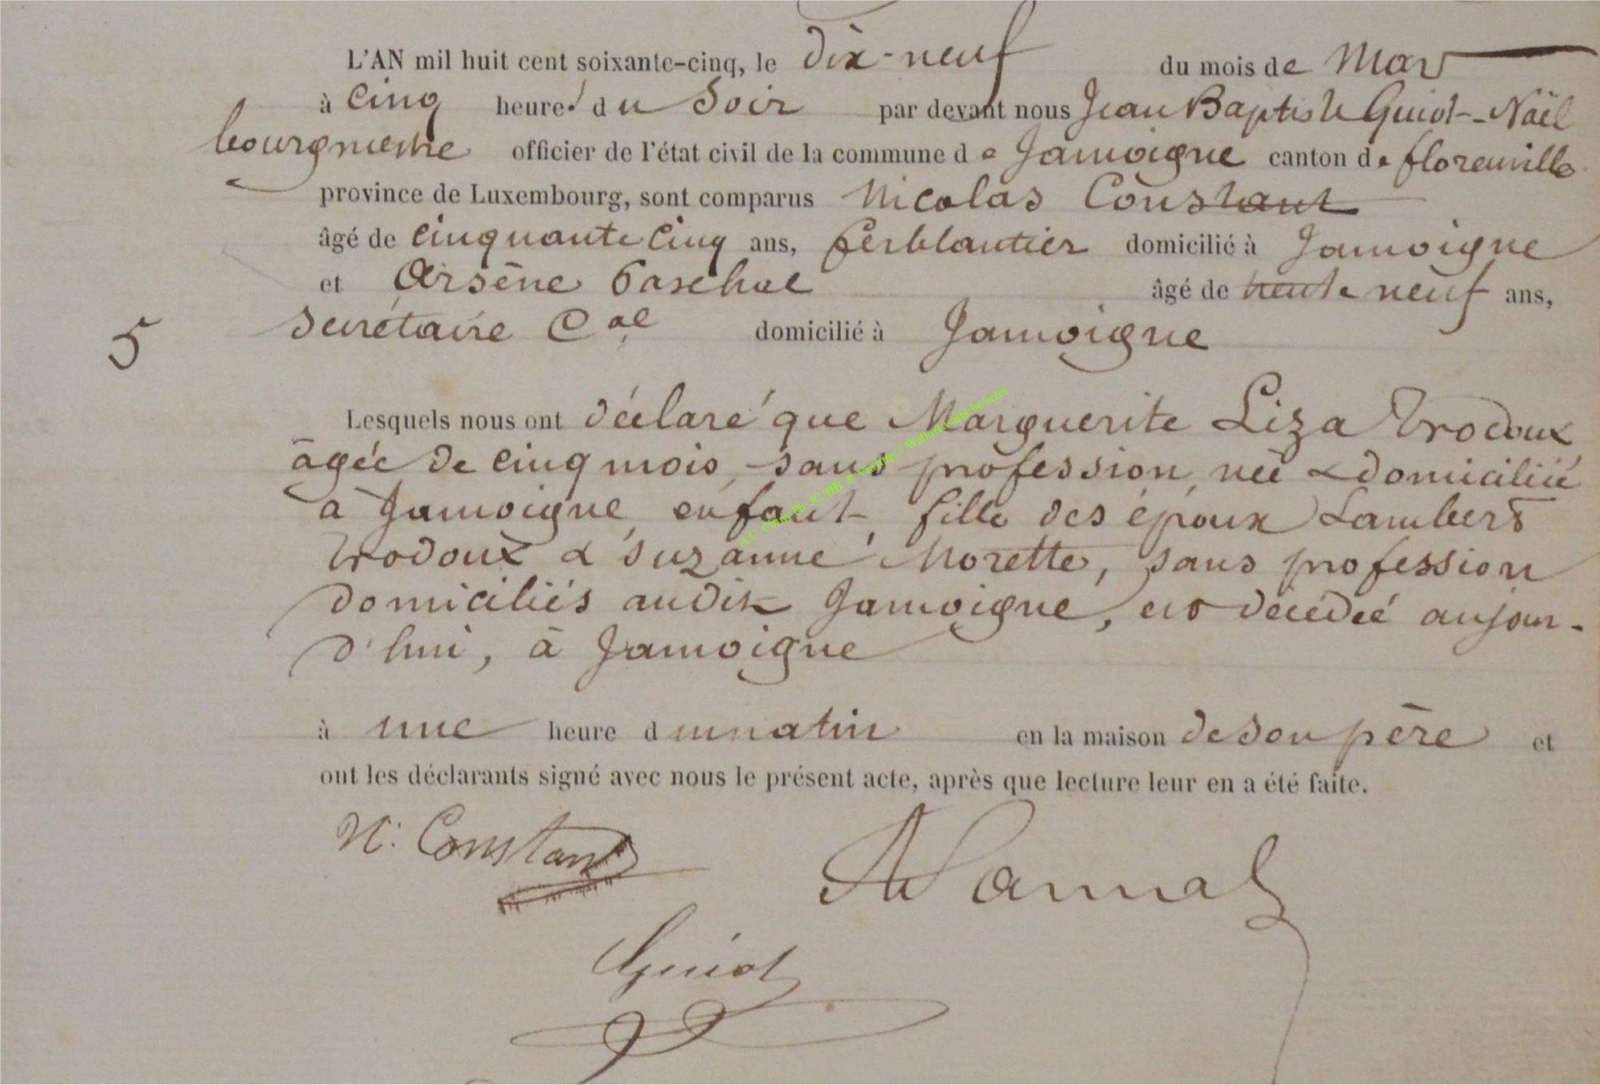 L'AN mil huit cent soixante-cinq, le dix-neuf du mois de Mars
à cinq heures du Soir par devant nous Jean Baptiste Guiot-Naël
bourgmestre officier de l'état civil de la commune de Jamoigne canton de florenville
province de Luxembourg, sont comparus Nicolas Constant
âgé de cinquante cinq ans, ferblantier domicilié à Jamoigne
et Arsène âgé de trente neuf ans,
Secrétaire Cal domicilié à Jamoigne
5
Lesquels nous ont déclaré que Marguerite Liza Trodoux
âgée de cinq mois, sans profession, née & domiciliée
à Jamoigne, enfant, fille des époux Lambert
Trodoux & Suzanne Morette, sans profession
domiciliés audit Jamoigne, est décédée aujour-
d'hui, à Jamoigne
à une heure du matin en la maison de son père et
ont les déclarants signé avec nous le présent acte, après que lecture leur en a été faite.
N. Constant
Guiot